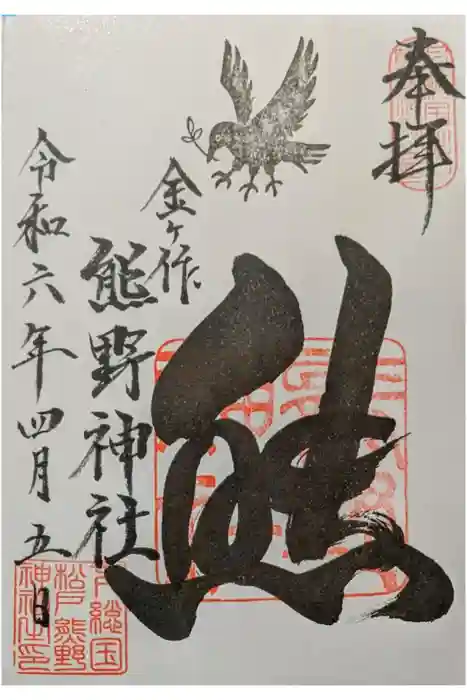 奉拝
熊
金ヶ作
熊野神社
令和六年四月五日
下総国
松戸熊野
神社印